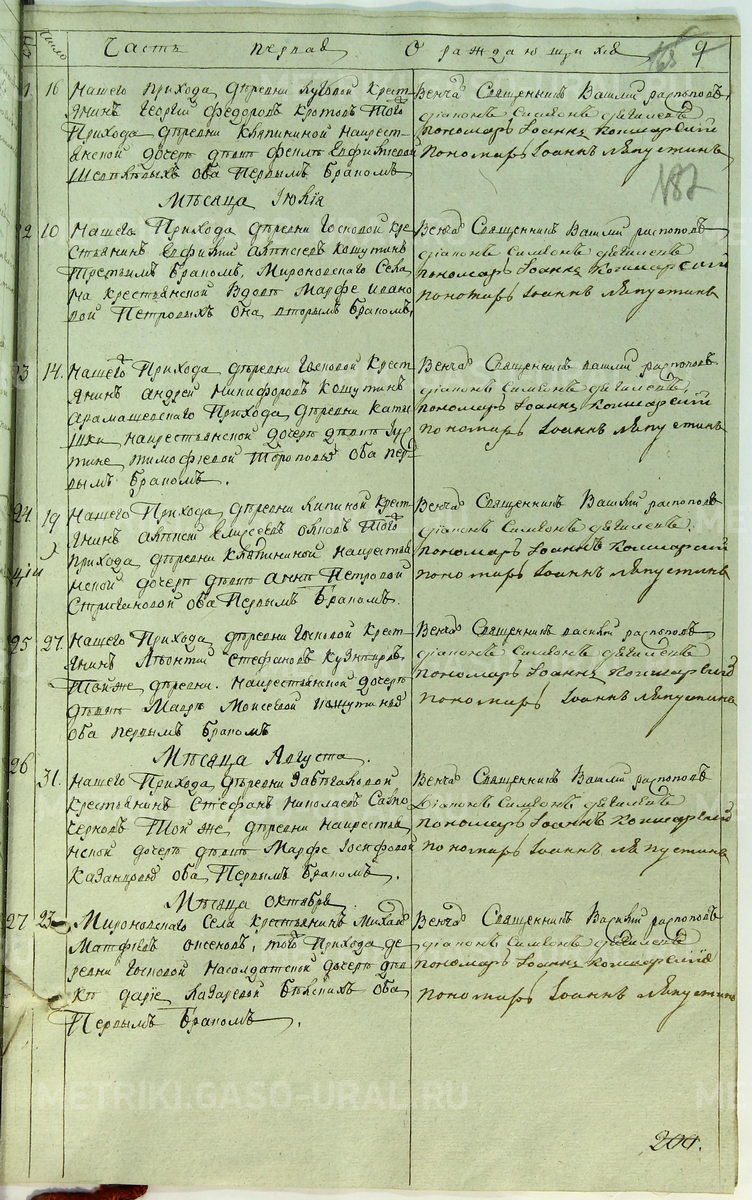 Число Часть первая О раждающихся 9
163
187
21. 16 Нашего прихода деревни Луговой крест-
янинъ Георгий Федоровъ Кротовъ того
прихода деревни Кляпининой накрест-
янской дочере девке Феклѣ Евфимьевой
оба первымъ бракомъ
Венчалъ Священникъ Василий распоповъ
діаконъ Симеонъ дягилевъ
пономарь Iоаннъ Кошмарский
пономарь Iоаннъ Лапустинъ
Мѣсяца Iюлія
22 10 Нашего Прихода деревни Госковой кре-
стьянинъ Евфимий Алексѣевъ Кошутинъ
Третьимъ бракомъ, Мироновскаго Села
на крестьянской вдовѣ Марфе Ивано
вой Петровыхъ она вторымъ бракомъ.
Венчалъ Священникъ Василий распоповъ
діаконъ Симеонъ дягилевъ
пономарь Iоаннъ Кошмарский
пономарь Iоаннъ Лапустинъ
23 14. Нашего Прихода деревни Госковой крест
янинъ Андрей Никифоровъ Кошутинъ
Арамашевскаго Прихода деревни Кати
шки накрестьянской дочере девкѣ Iус
тине Тимофеевой Тороповыхъ оба пер
вымъ бракомъ.
Венчалъ Священникъ Василий распоповъ
діаконъ Симеонъ дягилевъ
пономарь Iоаннъ Кошмарский
пономарь Iоаннъ Лапустинъ
24. 19 Нашего Прихода деревни Липиной крест
янинъ Алексѣй Елисеевъ того
прихода деревни Кляпининой накрестья
нской дочере девке Анне Петровой
Стригановой оба Первымъ Бракомъ.
Венчалъ Священникъ Василий распоповъ
діаконъ Симеонъ дягилевъ.
пономарь Iоаннъ Кошмарский
пономарь Iоаннъ Лапустинъ
25 27. Нашего Прихода деревни Госковой крест-
янинъ Леонтий Стефановъ
Той же деревни. накрестьянской дочере
девке Мавре Моисеевой Кошутиной
оба первымъ бракомъ
Венчалъ Священникъ василий распоповъ
діаконъ Симеонъ дягилевъ
пономарь Iоаннъ Кошмарский
пономарь Iоаннъ Лапустинъ
Мѣсяца Августа.
26 31. Нашего Прихода деревни Забегаловой
крестьянинъ Стефанъ Николаевъ Само
черновъ Той же деревни накрестья
нской дочере девке Марфе Iосифовой
Казанцовой оба Первымъ Бракомъ.
Венчалъ Священникъ Василий распоповъ
Діаконъ Симеонъ дягилевъ
пономарь Iоаннъ Кошмарский
пономарь Iоаннъ Лапустинъ
Мѣсяца Октября
27 23 Мироновскаго Села крестьянинъ Михайло
Матфѣевъ того Прихода де
ревни Госковой насолдатской дочере дев
кѣ Дарiе Лазаревой Бѣлскихъ оба
Первымъ Бракомъ.
Венчалъ Священникъ Василий распоповъ
діаконъ Симеонъ дягилевъ
пономарь Iоаннъ Кошмарский
пономарь Iоаннъ Лапустинъ
METRIKI.GASO-URAL.RU
200.